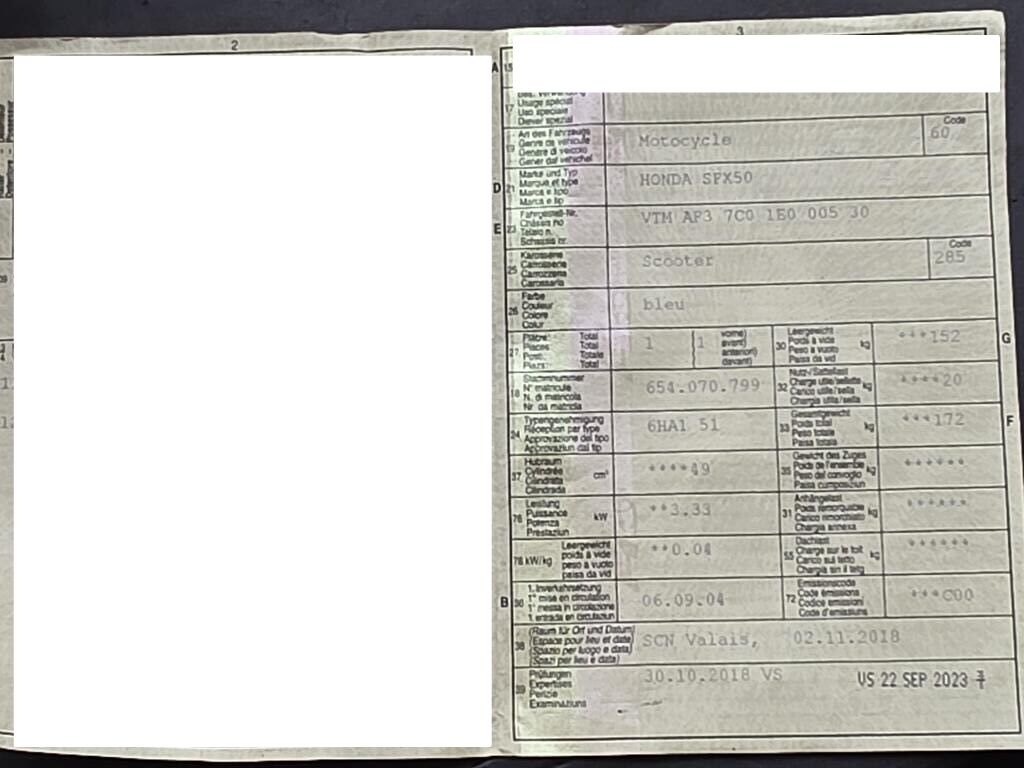 2
3
A 15
17 Usage spécial
Uso speciale
Diever spezial
19 Art des Fahrzeugs
Genre de véhicule
Genere di veicolo
Gener dal vehichel
Motocycle
Code
60
D 21 Marke und Typ
Marque et type
Marca e tipo
Marca e tip
HONDA SFX50
E 23 Fahrgestell-Nr.
Châssis no
Telaio n.
Schassis nr.
VTM AF3 7C0 1E0 005 30
25 Karosserie
Carrosserie
Carrozzeria
Carossaria
Scooter
Code
285
26 Farbe
Couleur
Colore
Colur
bleu
27 Plätze: Total
Places: Total
Posti: Totale
Plazs: Total
1
(1 vorne)
avant)
anteriori)
davant)
30 Leergewicht
Poids à vide kg
Peso a vuoto
Paisa da vid
***152
G
18 Stammnummer
N° matricule
N. di matricola
Nr. da matricla
654.070.799
32 Nutz-/Sattellast
Charge utile/sellette kg
Carico utile/sella
Chargia utila/sella
****20
24 Typengenehmigung
Réception par type
Approvazione del tipo
Approvaziun dal tip
6HA1 51
33 Gesamtgewicht
Poids total kg
Peso totale
Paisa totala
***172
F
37 Hubraum
Cylindrée cm³
Cilindrata
Cilindrada
****49
35 Gewicht des Zuges
Poids de l'ensemble kg
Peso del convoglio
Paisa cumposiziun
******
76 Leistung
Puissance kW
Potenza
Prestaziun
**3.33
31 Anhängelast
Poids remorquable kg
Carico rimorchiato
Chargia annexa
******
78 kW/kg Leergewicht
poids à vide
peso a vuoto
paisa da vid
**0.04
55 Dachlast
Charge sur le toit kg
Carico sul tetto
Chargia sin il tetg
******
B 36 1. Inverkehrsetzung
1re mise en circulation
1a messa in circolazione
1. entrada en circulaziun
06.09.04
72 Emissionscode
Code émissions
Codice emissioni
Code d'emissiuns
***C00
38 (Raum für Ort und Datum)
(Espace pour lieu et date)
(Spazio per luogo e data)
(Spazi per lieu e data)
SCN Valais, 02.11.2018
39 Prüfungen
Expertises
Perizie
Examinaziuns
30.10.2018 VS
VS 22 SEP 2023